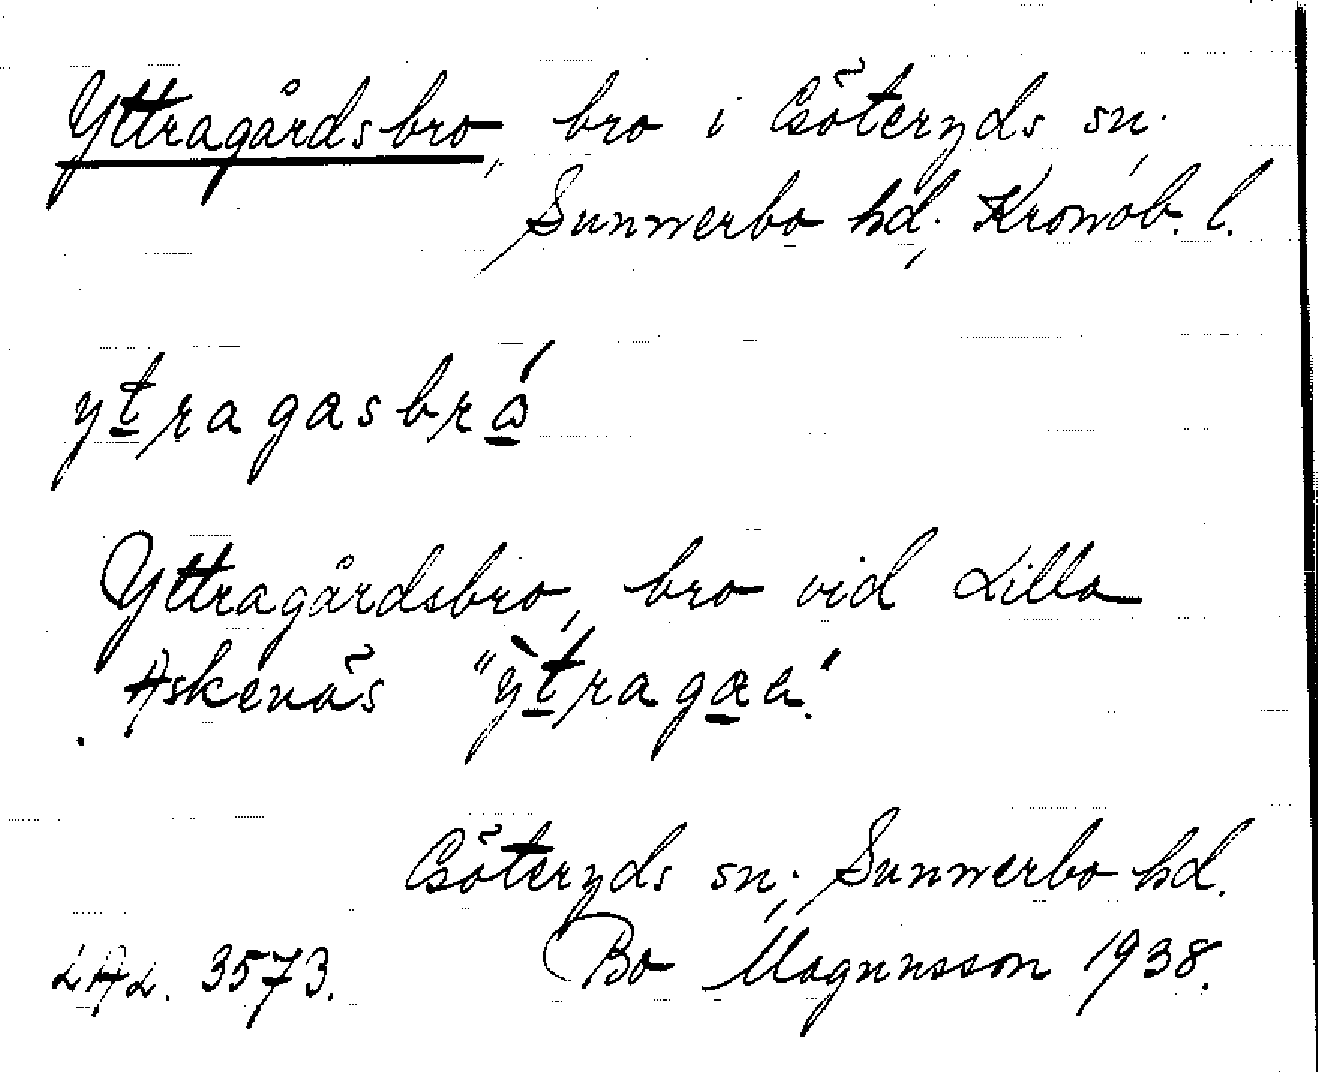 Yttragårdsbro, bro i Göteryds sn.,
Sunnerbo hd., Kronob. l.
ytragasbró
Yttragårdsbro, bro vid Lilla
Askenäs "ỳtragaa".
Göteryds sn., Sunnerbo hd.
LAL. 3573. Bo Magnusson 1938.